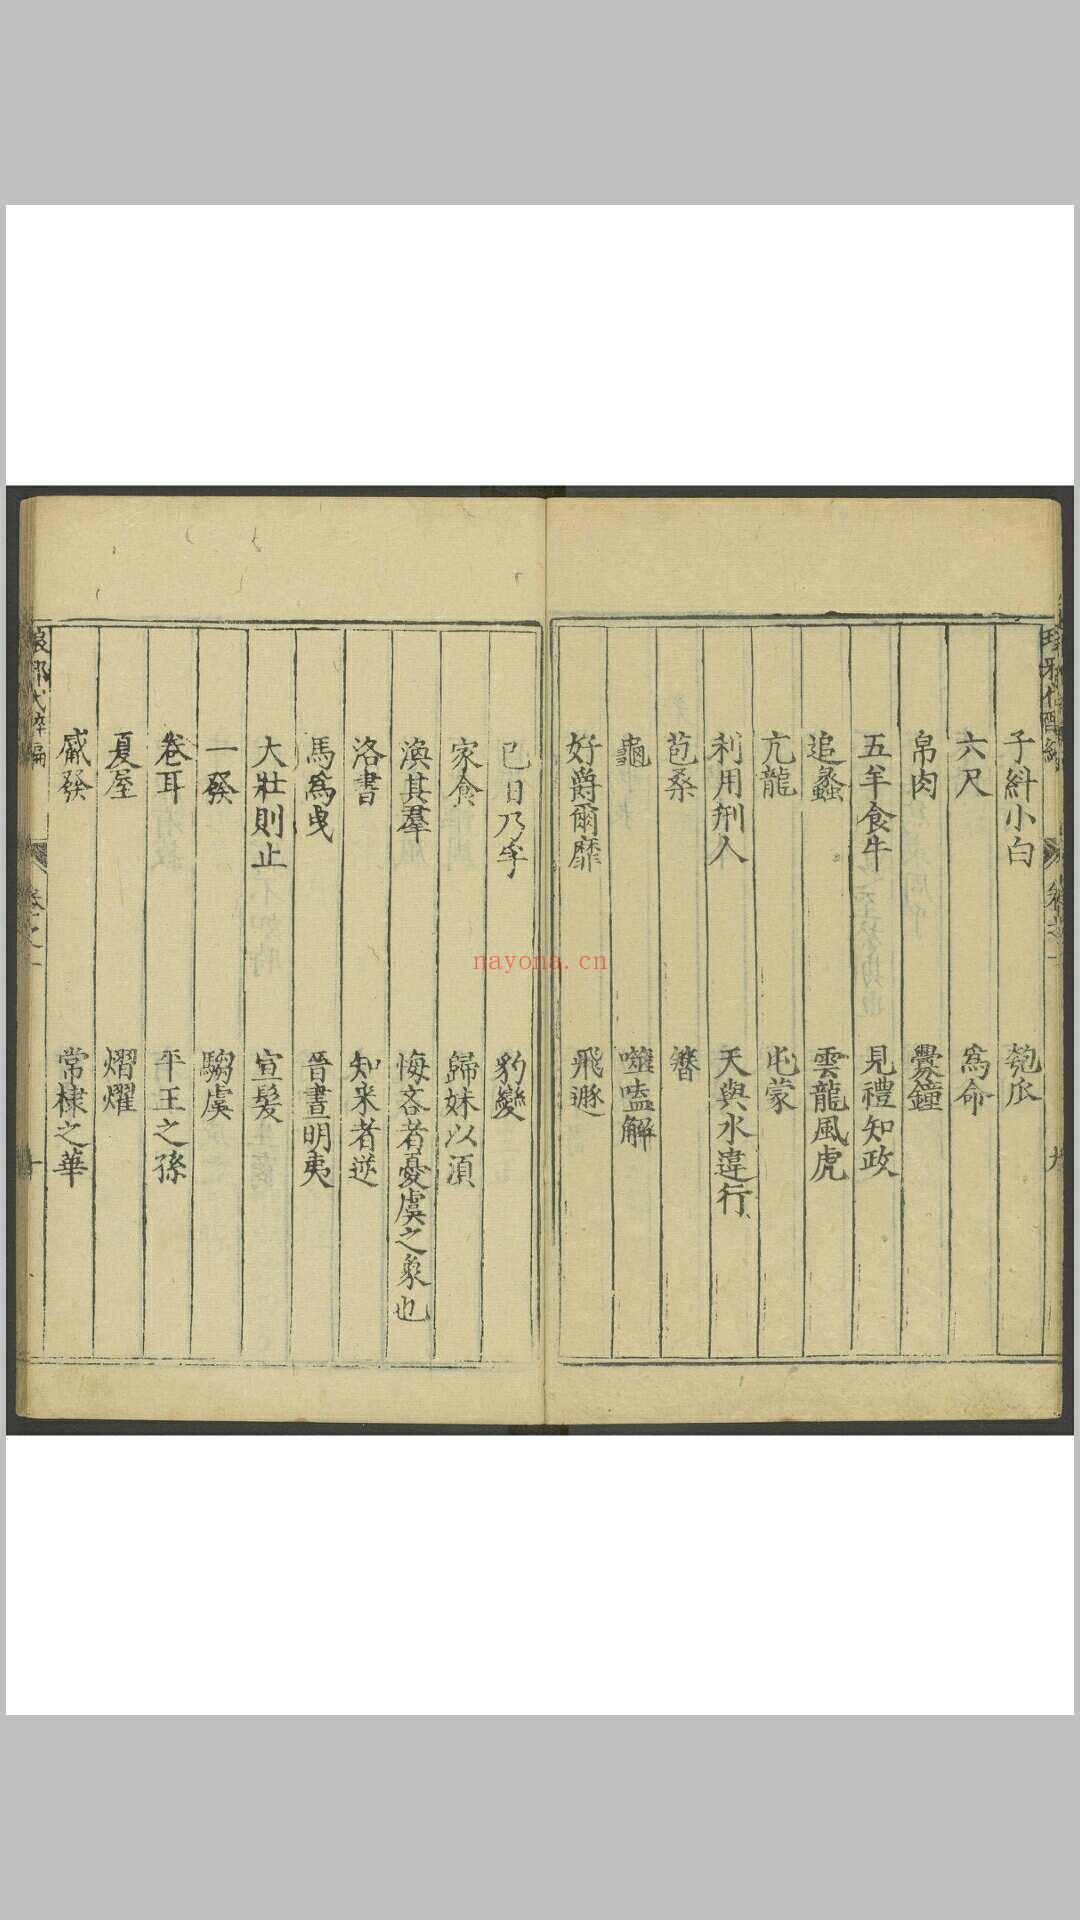 子糾小白
匏瓜
六尺
爲命
帛肉
釁鐘
五羊食牛
見禮知政
追蠡
雲龍風虎
亢龍
屯蒙
利用刑人
天與水違行
苞桑
簪
龜
噬嗑解
好爵爾靡
飛遯
巳日乃孚
豹變
家食
歸妹以須
渙其羣
悔吝者憂虞之象也
洛書
知來者逆
馬爲曳
晉晝明夷
大壯則止
宣髮
一發
騶虞
卷耳
平王之孫
夏屋
熠燿
觱發
常棣之華
卷之一
十
nayona.cn